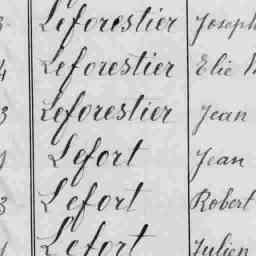 3 Leforestier Joseph
4 Leforestier Elie
3 Leforestier Jean
Lefort Jean
3 Lefort Robert
Lefort Julien